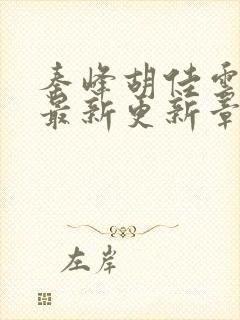 秦峰胡佳雪
最新更新章
左岸